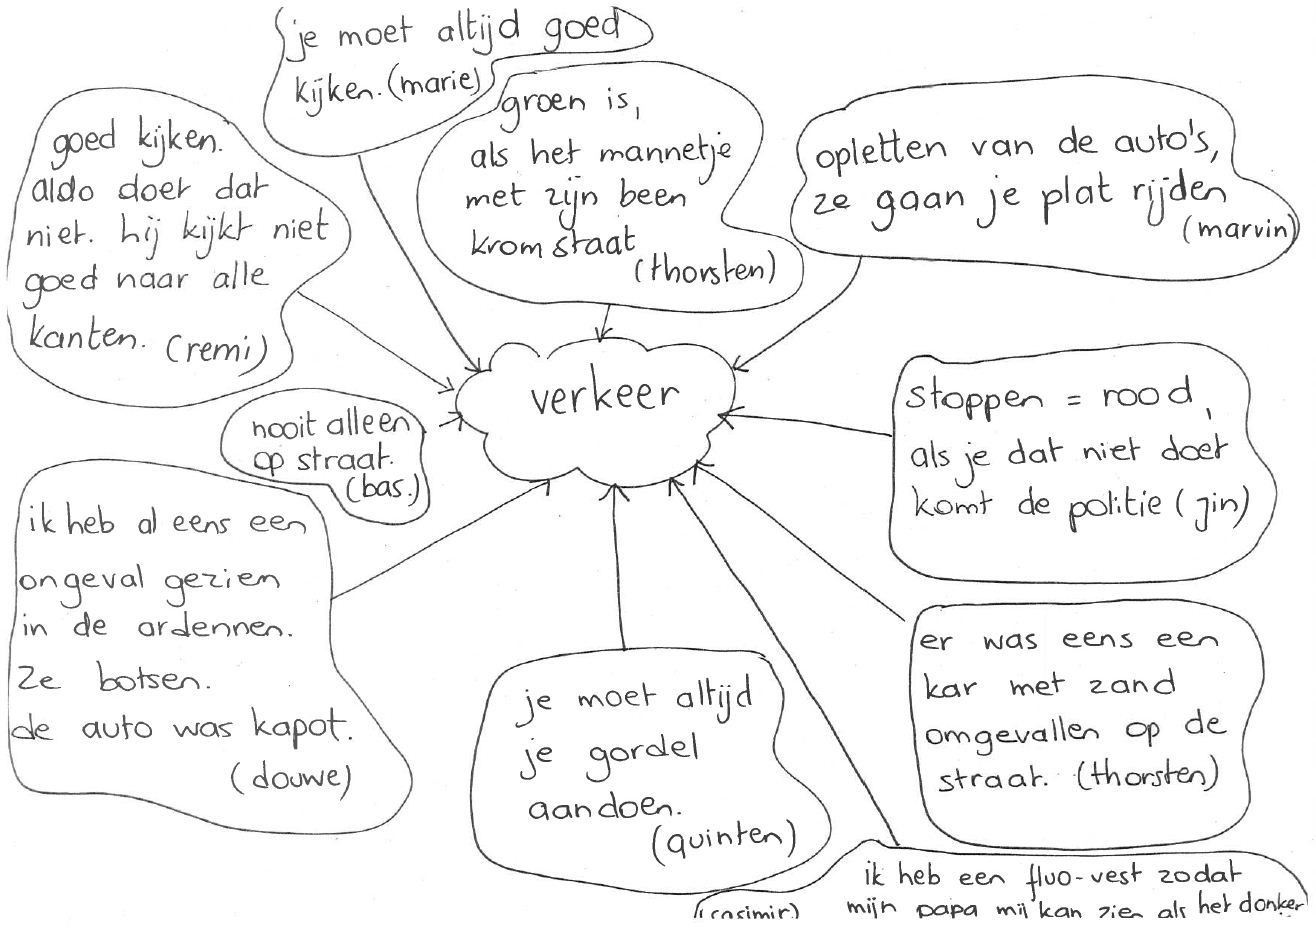 je moet altijd goed
kijken. (marie)
groen is,
als het mannetje
met zijn been
krom staat
(thorsten)
opletten van de auto's,
ze gaan je plat rijden
(marvin)
goed kijken.
aldo doet dat
niet. hij kijkt niet
goed naar alle
kanten. (remi)
verkeer
nooit alleen
op straat.
(bas.)
stoppen = rood,
als je dat niet doet
komt de politie (jin)
ik heb al eens een
ongeval gezien
in de ardennen.
ze botsen.
de auto was kapot.
(douwe)
er was eens een
kar met zand
omgevallen op de
straat. (thorsten)
je moet altijd
je gordel
aandoen.
(quinten)
ik heb een fluo-vest zodat
mijn papa mij kan zien als het donker
(casimir)